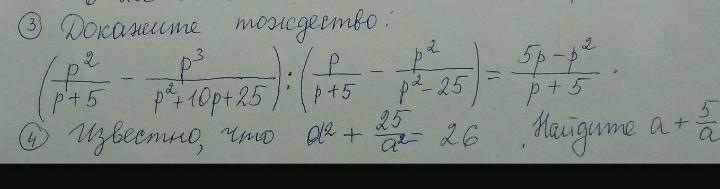 ③ Докажите тождество:
(p²/(p+5) − p³/(p²+10p+25)) : (p/(p+5) − p²/(p²−25)) = (5p−p²)/(p+5).
④ Известно, что a² + 25/a² = 26. Найдите a + 5/a